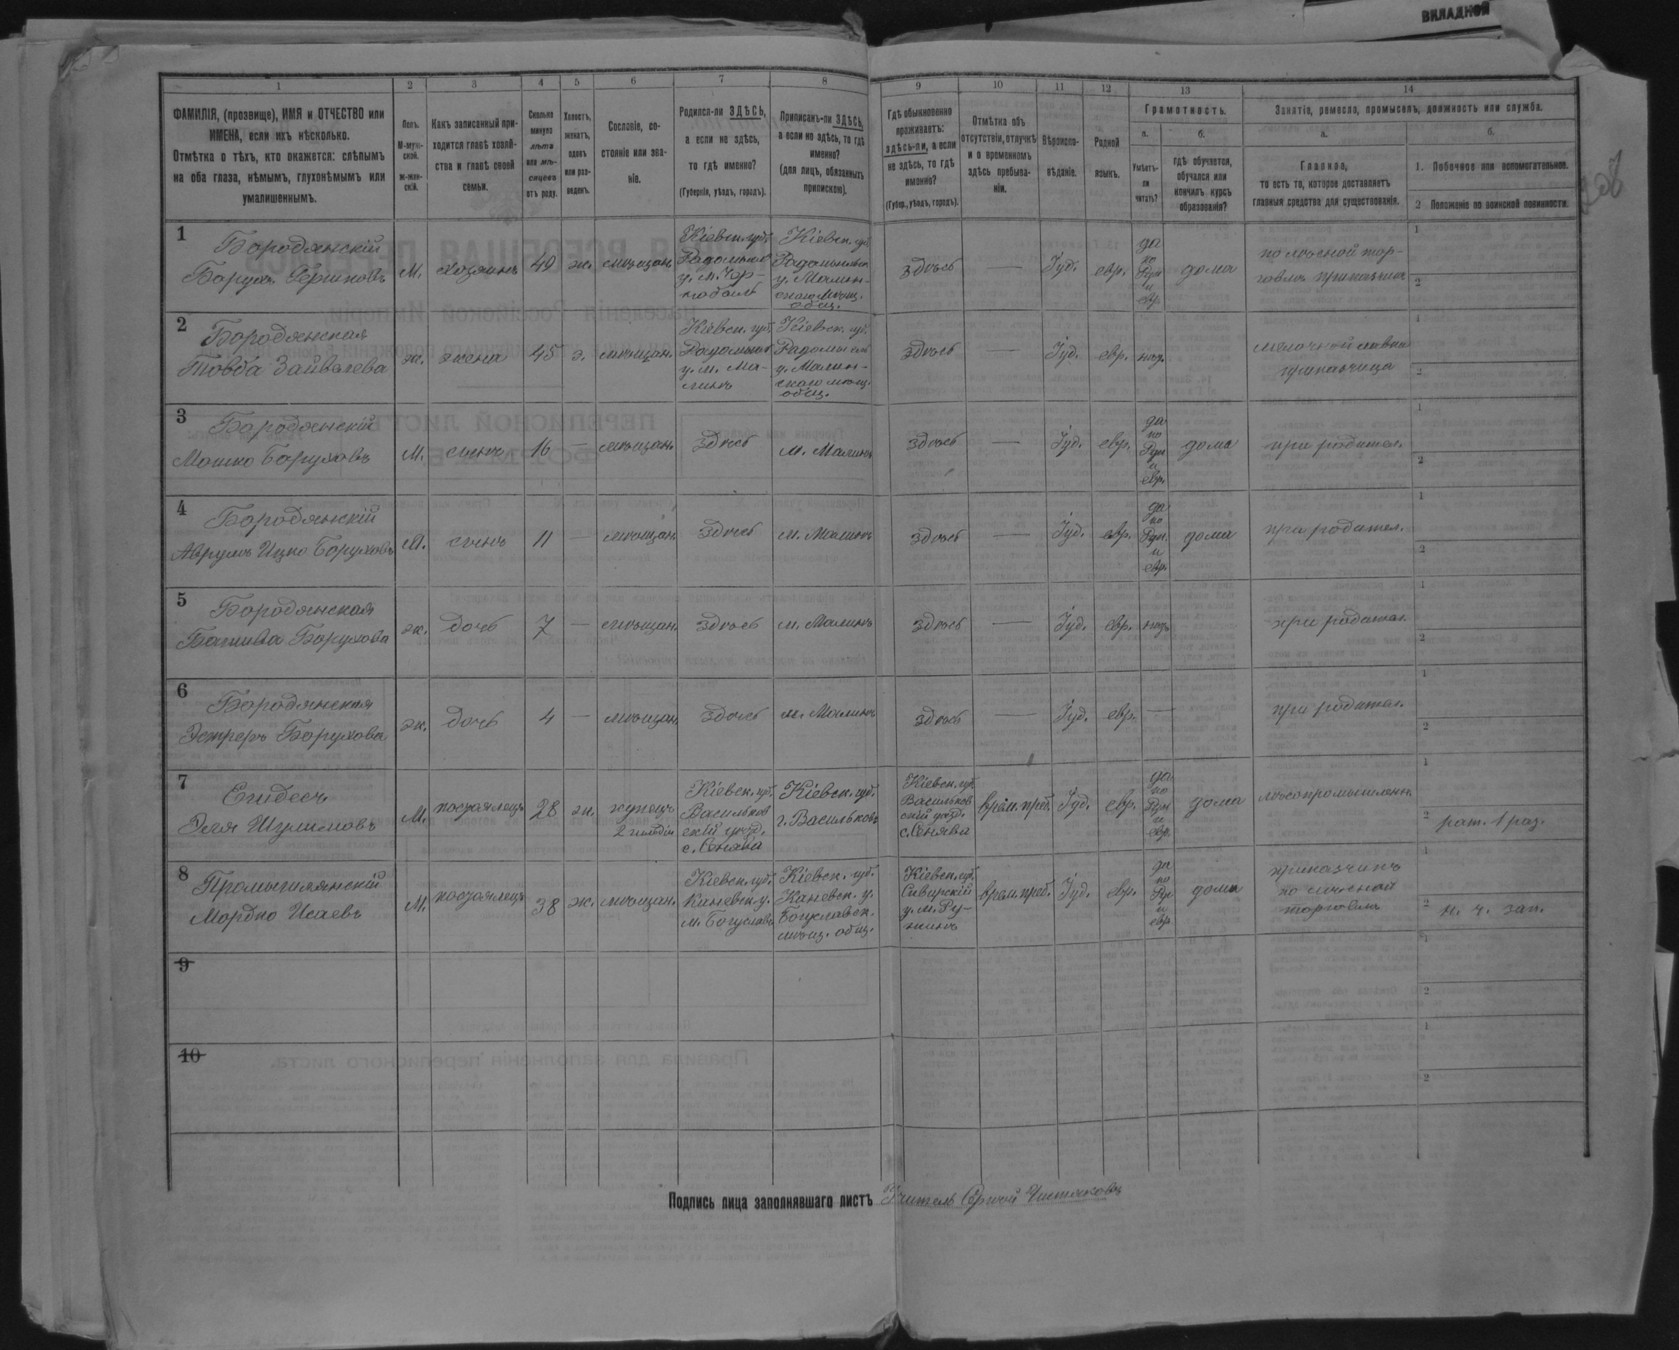 ВКЛАДНОЙ
1 2 3 4 5 6 7 8 9 10 11 12 13 14
ФАМИЛІЯ, (прозвище), ИМЯ и ОТЧЕСТВО или
ИМЕНА, если ихъ нѣсколько.
Отмѣтка о тѣхъ, кто окажется: слѣпымъ
на оба глаза, нѣмымъ, глухонѣмымъ или
умалишеннымъ.
Полъ.
М-муж-
ской.
ж-жен-
скій.
Какъ записанный при-
ходится главѣ хозяй-
ства и главѣ своей
семьи.
Сколько
минуло
лѣтъ
или мѣ-
сяцевъ
отъ роду.
Холостъ,
женатъ,
вдовъ
или раз-
веденъ.
Сословіе, со-
стояніе или зва-
ніе.
Родился-ли ЗДѢСЬ,
а если не здѣсь,
то гдѣ именно?
(Губернія, уѣздъ, городъ).
Приписанъ-ли ЗДѢСЬ,
а если не здѣсь, то гдѣ
именно?
(для лицъ, обязанныхъ
припискою).
Гдѣ обыкновенно
проживаетъ:
здѣсь-ли, а если
не здѣсь, то гдѣ
именно?
(Губер., уѣздъ, городъ).
Отмѣтка объ
отсутствіи, отлучкѣ
и о временномъ
здѣсь пребыва-
ніи.
Вѣроиспо-
вѣданіе.
Родной
языкъ.
Грамотность.
а.
Умѣетъ-
ли
читать?
б.
гдѣ обучается,
обучался или
кончилъ курсъ
образованія?
Занятіе, ремесло, промыселъ, должность или служба.
а.
Главное,
то есть то, которое доставляетъ
главныя средства для существованія.
б.
1. Побочное или вспомогательное.
2 Положеніе по воинской повинности.
1
Бородянскій
Борухъ Гершковъ
М. хозяинъ 49 ж. мѣщан.
Кіевск. губ.
Радомысл
у. м. Чер-
нобыль
Кіевск. губ.
Радомысльск
у. Малин-
скаго мѣщ.
общ.
здѣсь — Іуд. евр.
да
по
Рус
и
евр.
дома
по мясной тор-
говлѣ приказчикъ
1
2
2
Бородянская
Товба Зайвелева
ж. жена 45 з. мѣщан.
Кіевск. губ.
Радомысл
у. м. Ма-
линъ
Кіевск. губ.
Радомысль
у. Малин-
скаго мѣщ.
общ.
здѣсь — Іуд. евр. нѣт.
мелочной лавки
приказчица
1
2
3
Бородянскій
Мошко Боруховъ
М. сынъ 16 — мѣщан. здѣсь м. Малинъ здѣсь — Іуд. евр.
да
по
Рус
и
евр.
дома при родител.
1
2
4
Бородянскій
Аврумъ Ицко Боруховъ
М. сынъ 11 — мѣщан. здѣсь м. Малинъ здѣсь — Іуд. евр.
да
по
Рус.
и
евр.
дома при родител.
1
2
5
Бородянская
Батшева Борухова
ж. дочь 7 — мѣщан. здѣсь м. Малинъ здѣсь — Іуд. евр. нѣтъ при родител.
1
2
6
Бородянская
Эстеръ Борухова
ж. дочь 4 — мѣщан. здѣсь м. Малинъ здѣсь — Іуд. евр. — при родител.
1
2
7
Эля
М. постоялецъ 28 ж.
купецъ
2 гильдіи
Кіевск. губ.
Васильков
скій уѣзд.
Кіевск. губ.
г. Васильковъ
Кіевск. губ.
Васильков
скій уѣзд.
врем. преб. Іуд. евр.
да
по
Рус
и
евр.
дома лѣсопромышленн.
1
2 рат. 1 раз.
8
Промышлянскій
Мордко Исаевъ
М. постоялецъ 38 ж. мѣщан.
Кіевск. губ.
Каневск. у.
м. Богуславъ
Кіевск. губ.
Каневск. у.
Богуславск.
мѣщ. общ.
Кіевск. губ.
Сквирскій
у. м. Ру-
жинъ
врем. преб. Іуд. евр.
да
по
Рус
и
евр.
дома
приказчикъ
по лѣсной
торговлѣ
1
2 н. ч. зап.
9
1
2
10
1
2
Подпись лица заполнявшаго листъ Учитель Сергѣй Чистяковъ